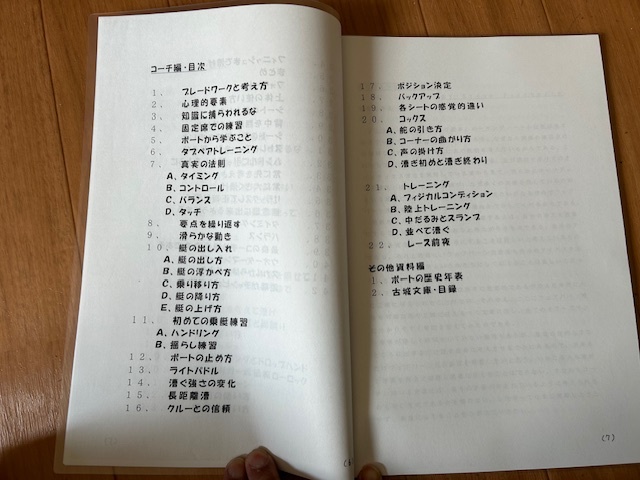 コーチ編・目次
1. ブレードワークと考え方
2. 心理的要素
3. 知識に捕らわれるな
4. 固定席での練習
5. ボートから学ぶこと
6. タブペアトレーニング
7. 真実の法則
A、タイミング
B、コントロール
C、バランス
D、タッチ
8. 要点を繰り返す
9. 滑らかな動き
10. 艇の出し入れ
A、艇の出し方
B、艇の浮かべ方
C、乗り移り方
D、艇の降り方
E、艇の上げ方
11. 初めての乗艇練習
A、ハンドリング
B、揺らし練習
12. ボートの止め方
13. ライトパドル
14. 漕ぐ強さの変化
15. 長距離漕
16. クルーとの信頼
17. ポジション決定
18. バックアップ
19. 各シートの感覚的違い
20. コックス
A、舵の引き方
B、コーナーの曲がり方
C、声の掛け方
D、漕ぎ初めと漕ぎ終わり
21. トレーニング
A、フィジカルコンディション
B、陸上トレーニング
C、中だるみとスランプ
D、並べて漕ぐ
22. レース前夜
その他資料編
1. ボートの歴史年表
2. 古城文庫・目録
(7)